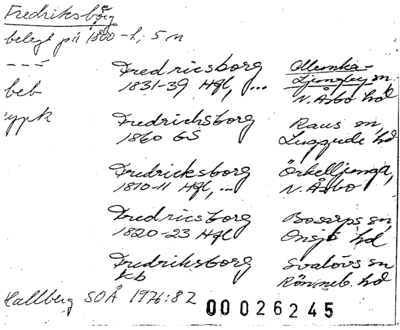 Fredriksborg
belegt på 1800-t, 5 n
--- Fredricsborg Allemka-
1831-39 Hfl, ... Ljungby sn
beb N. Åsbo hd
typk Fredrichsborg Raus sn,
1860 GS Luggude hd
Fredricksborg Örkelljunga,
1810-11 Hfl, ... N. Åsbo
Fredricsborg Bosarps sn
1820-23 Hfl Onsjö hd
Fredriksborg Svalövs sn
kb Rönneb. hd
Hallberg SOÅ 1976:82
00026245